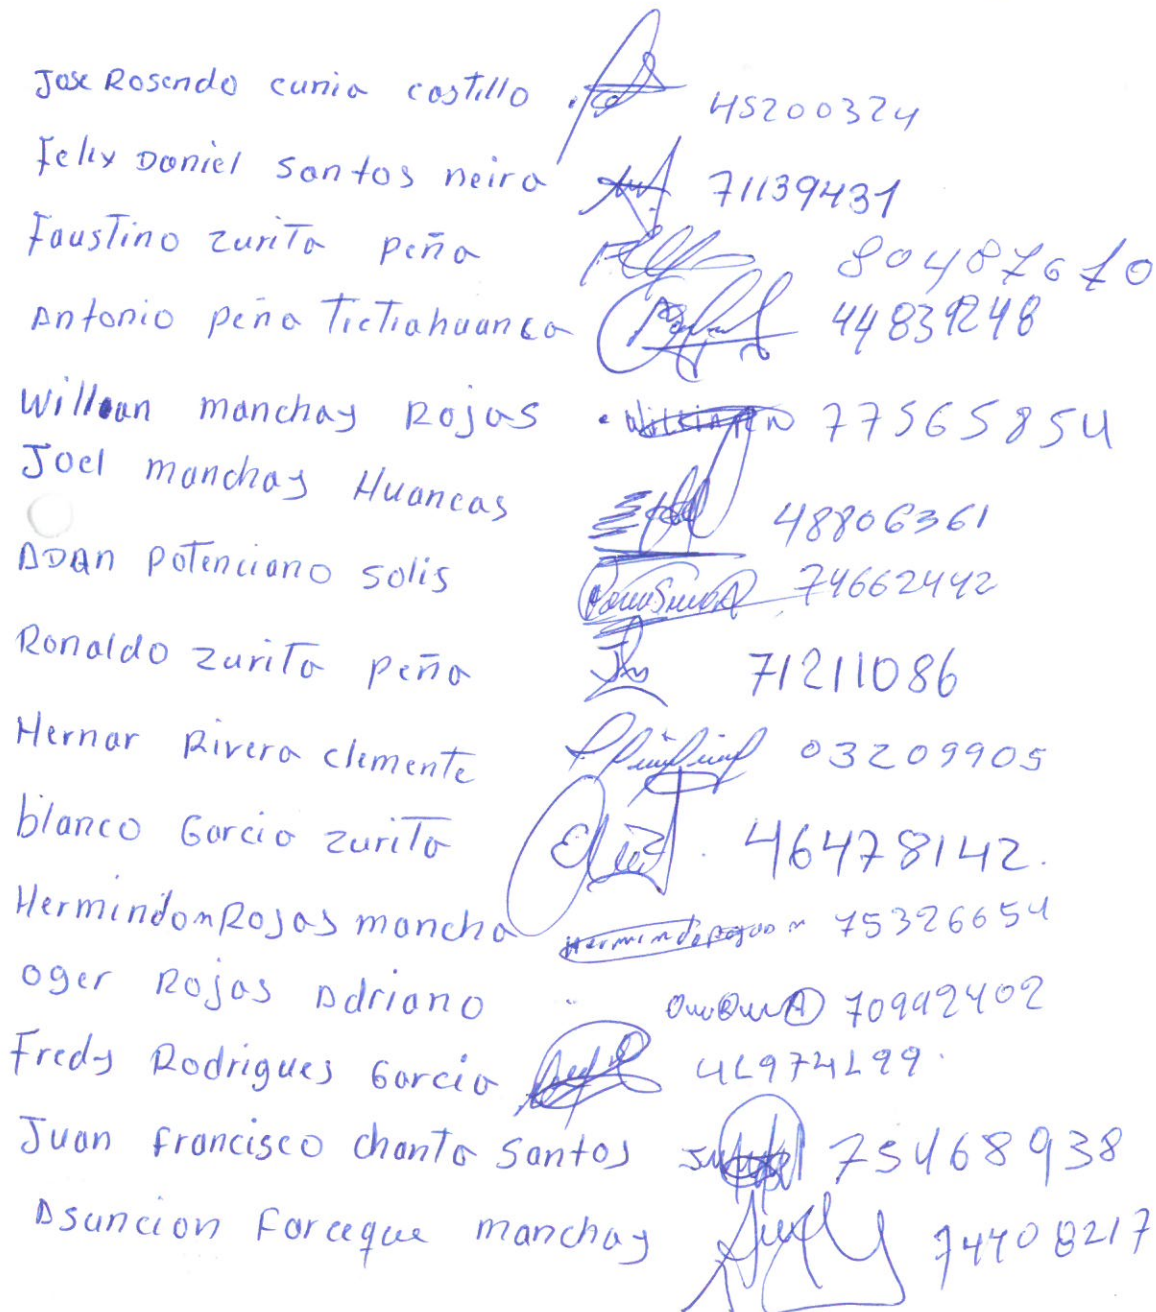 Jose Rosendo cunia castillo 45200324
Felix Daniel Santos neira 71139431
Faustino zurita peña 80487610
Antonio peña Ticliahuanca 44839248
Willan manchay Rojas 77565854
Joel manchay Huancas 48806361
ADAn potenciano solis 74662442
Ronaldo zurita peña 71211086
Hernar Rivera clemente 03209905
blanco Garcia zurita 46478142.
Hermindo Rojas mancha 75326654
oger Rojas Adriano 70992402
Fredy Rodrigues Garcia
Juan francisco chanta Santos 75468938
Asuncion Farceque manchay 74408217